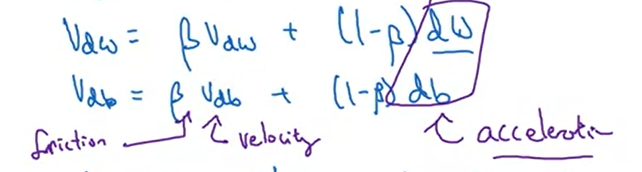 Vdw = β Vdw + (1-β) dw
Vdb = β Vdb + (1-β) db
friction velocity acceleration